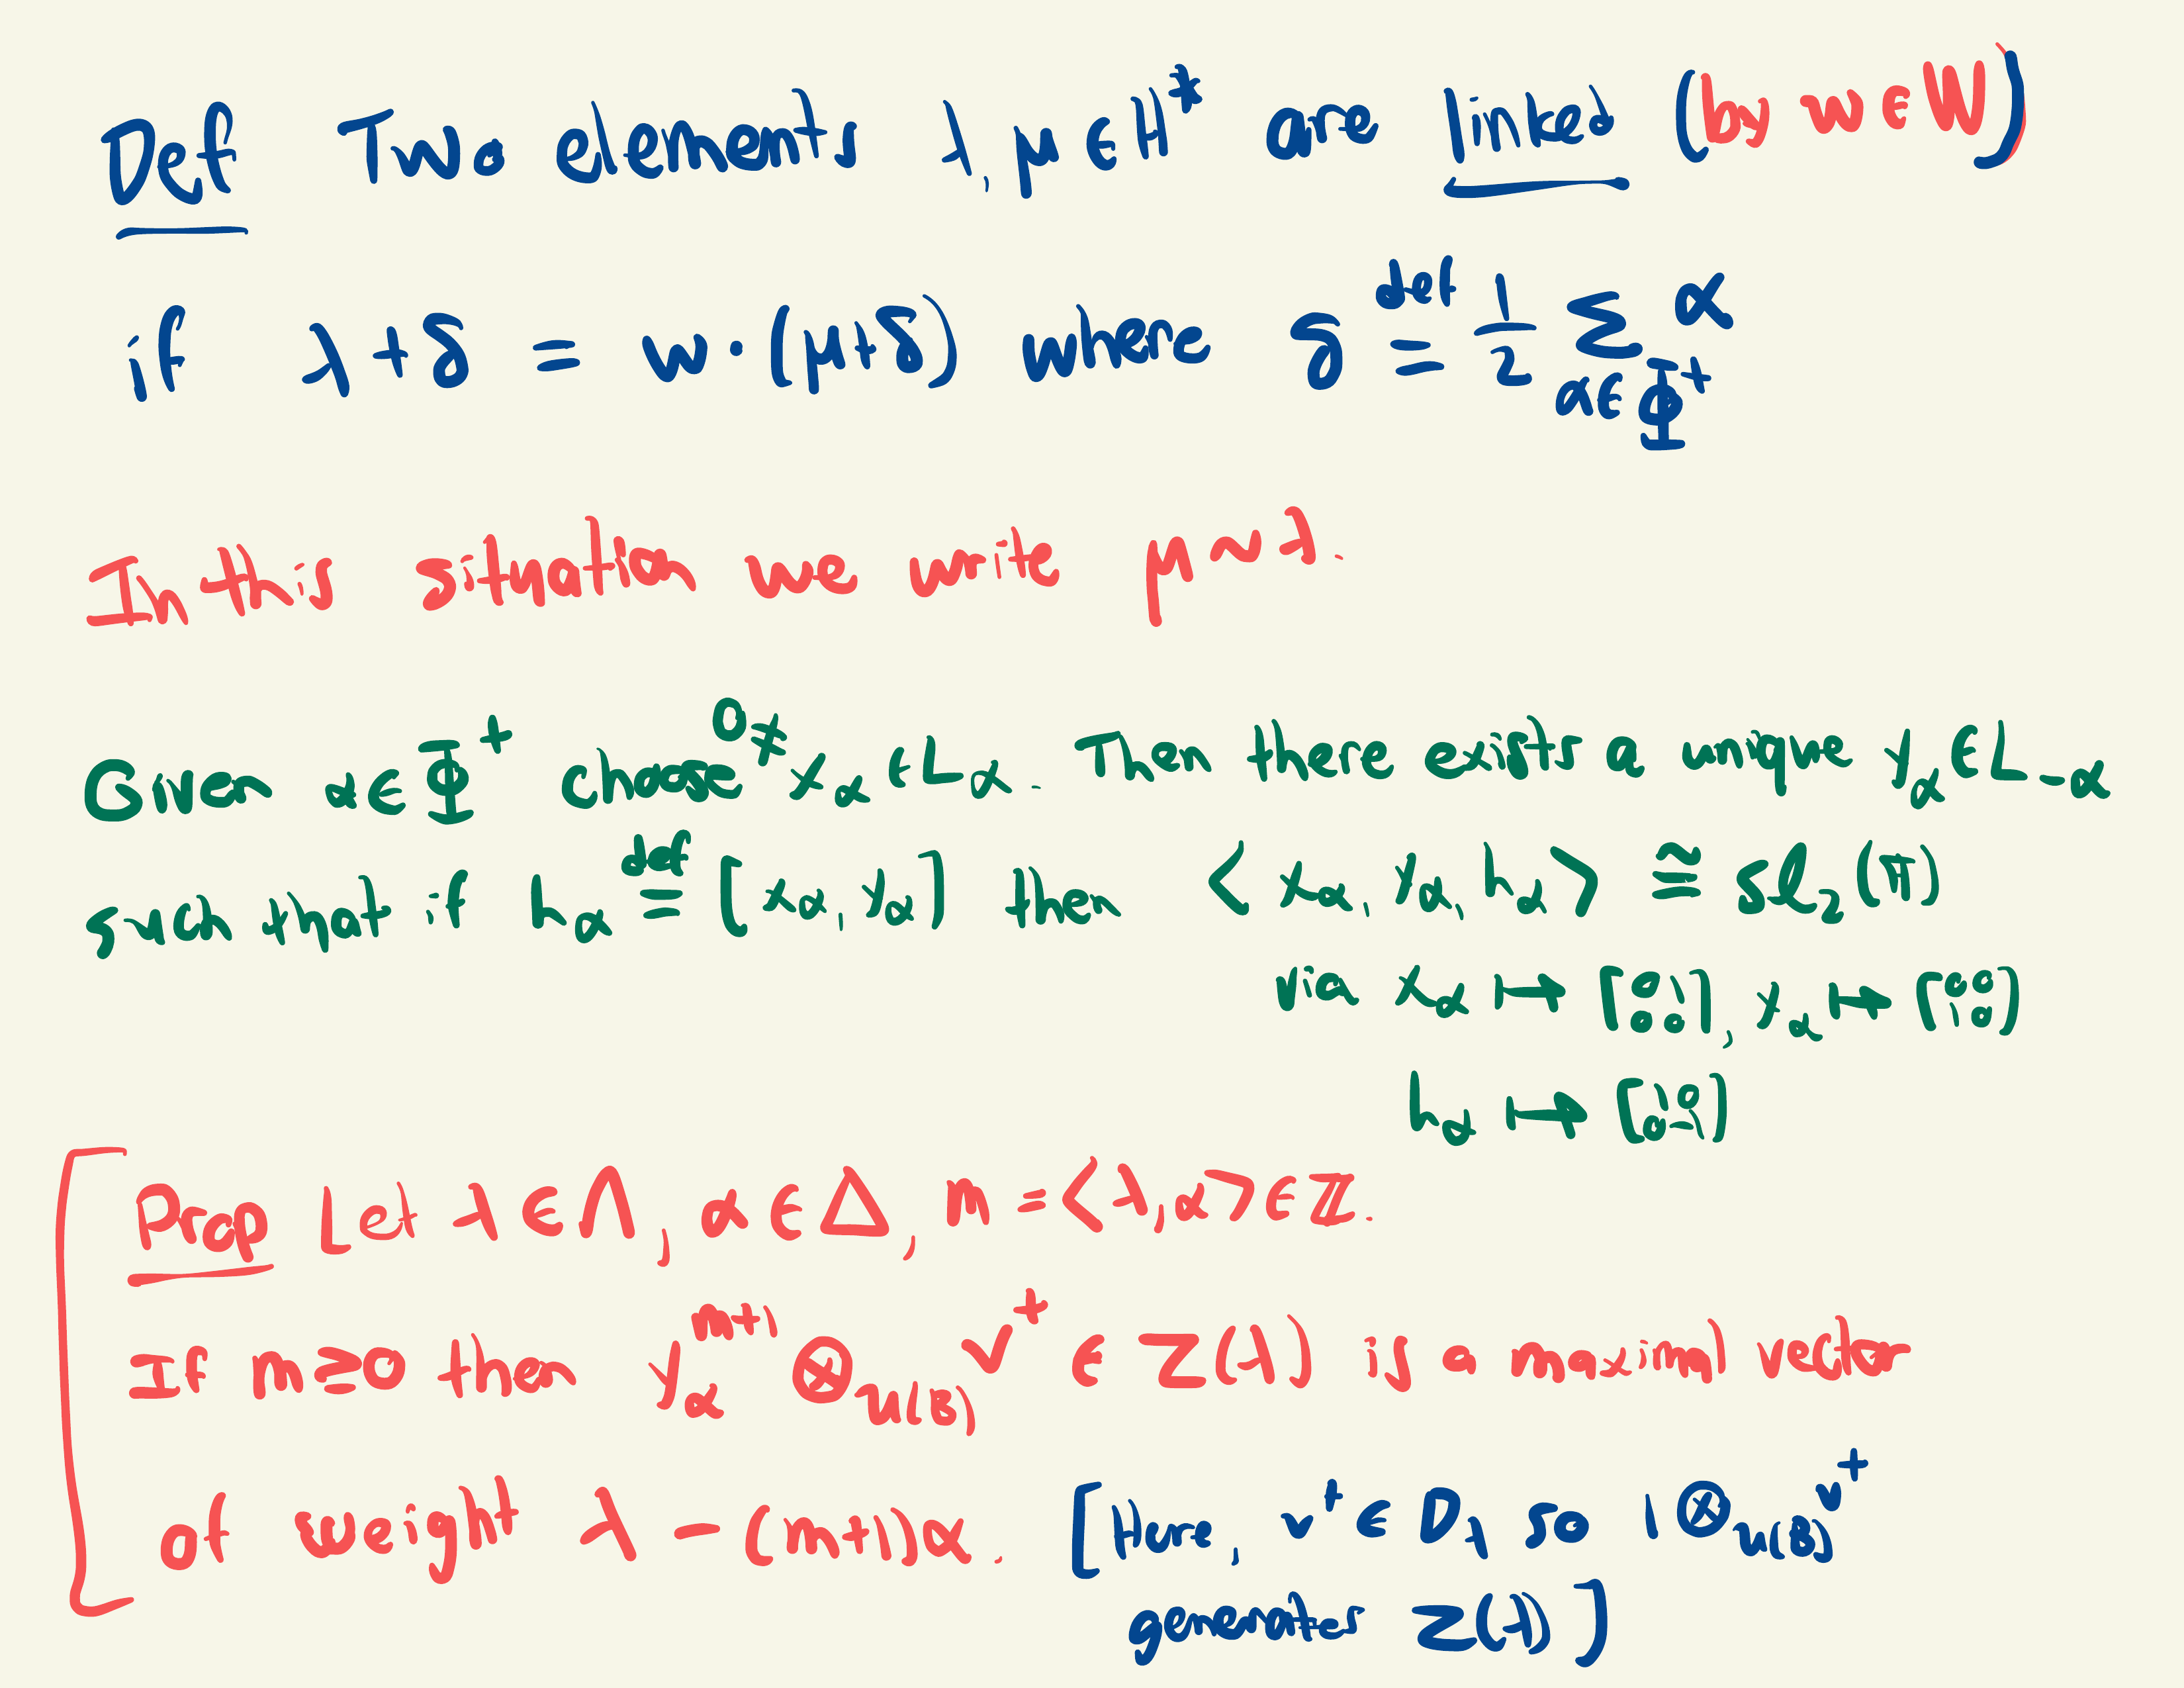 Def Two elements λ, μ ∈ H* are linked (by w ∈ W)
if λ + δ = w·(μ+δ) where δ def= 1/2 Σ_{α∈Φ⁺} α
In this situation we write μ ~ λ.
Given α ∈ Φ⁺ choose 0 ≠ x_α ∈ L_α. Then there exists a unique y_α ∈ L_{-α}
such that if h_α def= [x_α, y_α] then < x_α, y_α, h_α > ≅ sl₂(F)
via x_α ↦ [0 1; 0 0], y_α ↦ [0 0; 1 0]
h_α ↦ [1 0; 0 -1]
Prop Let λ ∈ Λ, α ∈ Δ, m = <λ, α> ∈ ℤ.
If m ≥ 0 then y_α^{m+1} ⊗_{U(B)} v⁺ ∈ Z(λ) is a maximal vector
of weight λ - (m+1)α. [Here, v⁺ ∈ D_λ so 1 ⊗_{U(B)} v⁺
generates Z(λ)]